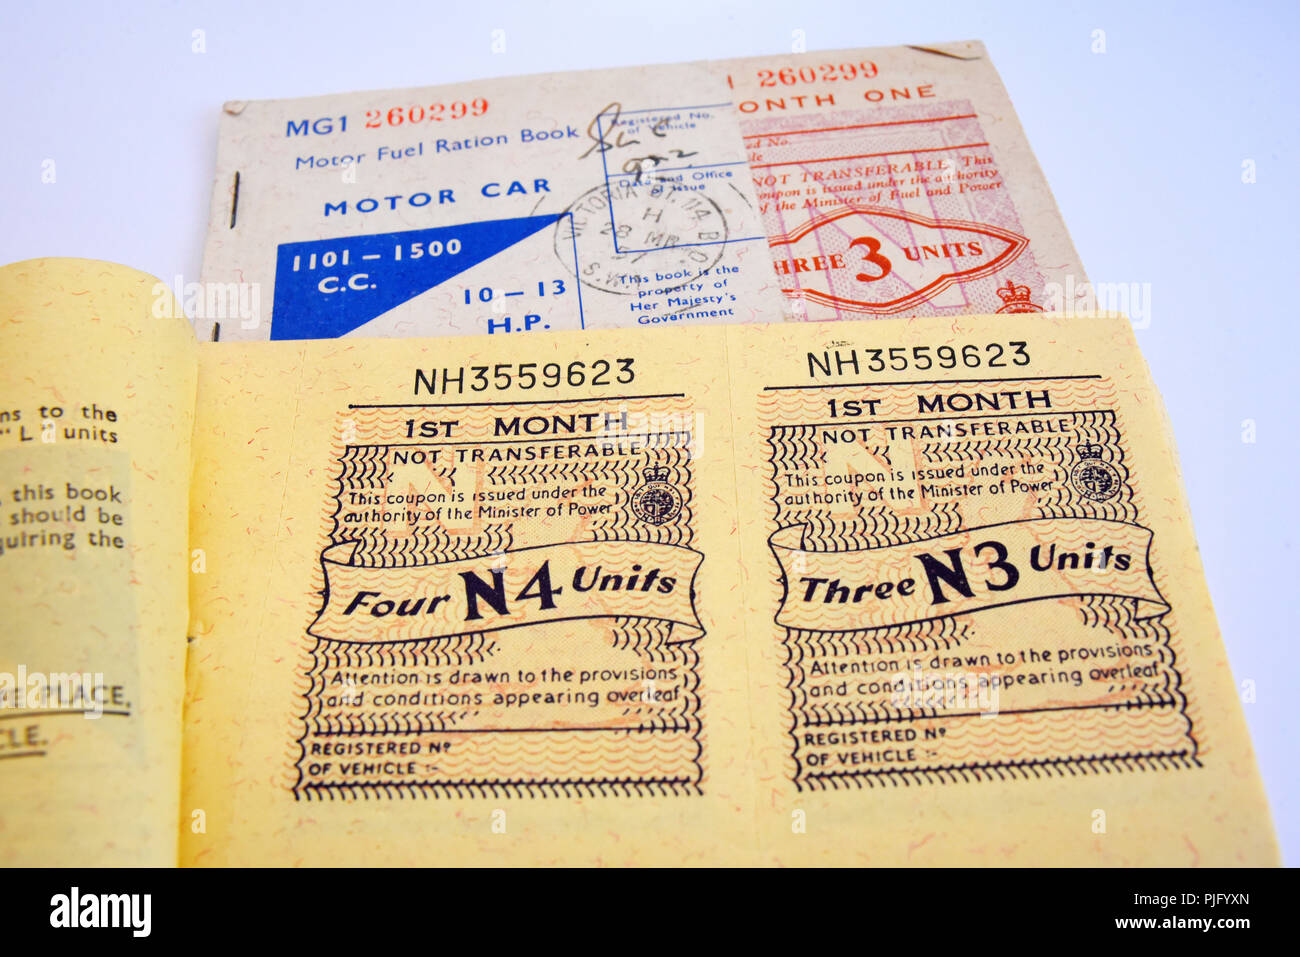 MG1 260299
Motor Fuel Ration Book
MOTOR CAR
1101 – 1500
C.C.
10 – 13
H.P.
Registered No.
of Vehicle
Date and Office
of Issue
VICTORIA ST. 114 B.O.
H
28 MR
57
S.W.1
This book is the
property of
Her Majesty's
Government
260299
ONTH ONE
ed No.
NOT TRANSFERABLE. This
coupon is issued under the authority
of the Minister of Fuel and Power
THREE 3 UNITS
ns to the
"L" units
, this book
should be
quiring the
PLACE,
CLE.
NH3559623
1ST MONTH
NOT TRANSFERABLE
This coupon is issued under the
authority of the Minister of Power
Four N4 Units
Attention is drawn to the provisions
and conditions appearing overleaf
REGISTERED Nº
OF VEHICLE :-
NH3559623
1ST MONTH
NOT TRANSFERABLE
This coupon is issued under the
authority of the Minister of Power
Three N3 Units
Attention is drawn to the provisions
and conditions appearing overleaf
REGISTERED Nº
OF VEHICLE :-
alamy
Image ID: PJFYXN
www.alamy.com